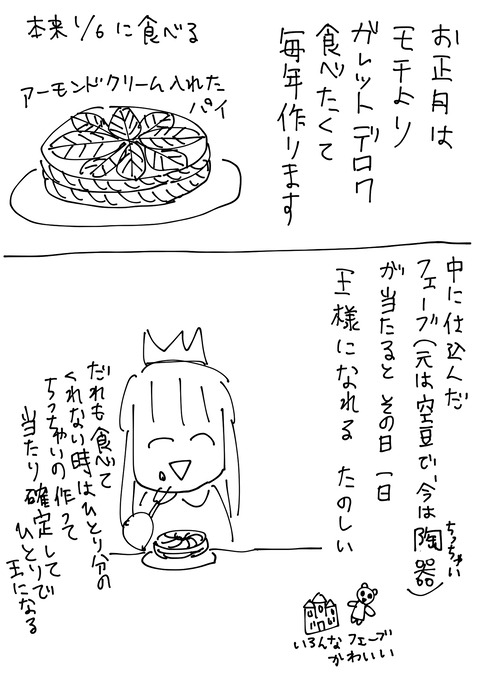 お正月は
モチより
ガレットデロワ
食べたくて
毎年作ります
本来1/6に食べる
アーモンドクリーム入れた
パイ
中に仕込んだ
フェーブ(元は空豆で、今は陶器)
ちっちゃい
が当たると その日一日
王様になれる たのしい
だれも食べて
くれない時はひとり分の
ちっちゃいの作って
当たり確定してひとりで
王になる
いろんなフェーブ
かわいい